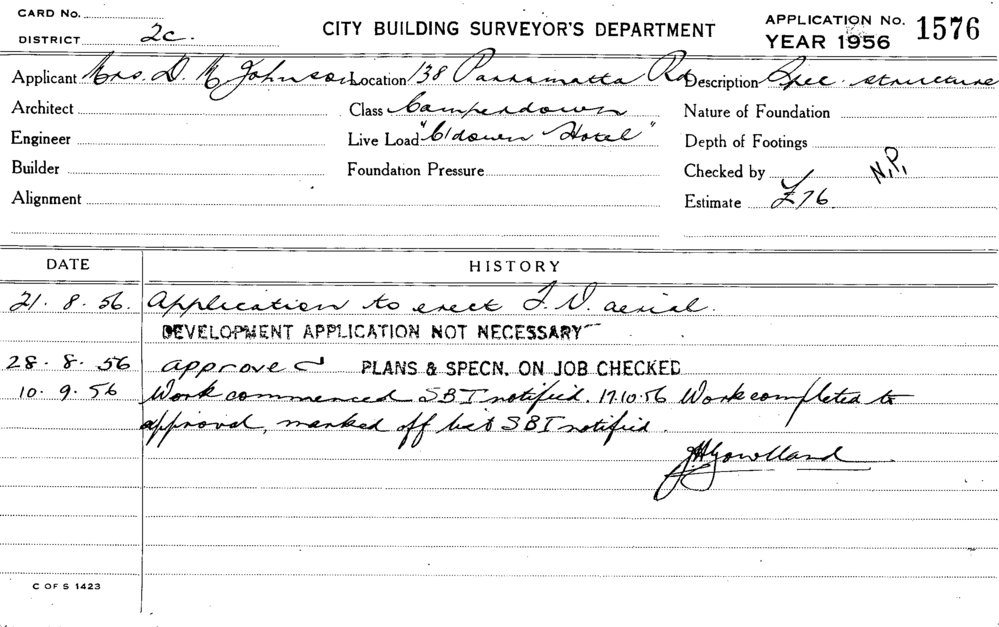 CARD No.
DISTRICT 2c.
CITY BUILDING SURVEYOR'S DEPARTMENT
APPLICATION No. 1576
YEAR 1956
Applicant Mrs. D. M Johnson Location 138 Parramatta Rd Description Spec. structure
Architect Class Camperdown Nature of Foundation
Engineer Live Load "C'down Hotel" Depth of Footings
Builder Foundation Pressure Checked by N.P.
Alignment Estimate £76
DATE HISTORY
21. 8. 56. Application to erect T.V. aerial.
DEVELOPMENT APPLICATION NOT NECESSARY
28. 8. 56 approved PLANS & SPECN. ON JOB CHECKED
10. 9. 56 Work commenced SBI notified. 17.10.56 Work completed to
approval, marked off list SBI notified.
JHGowlland
C OF S 1423